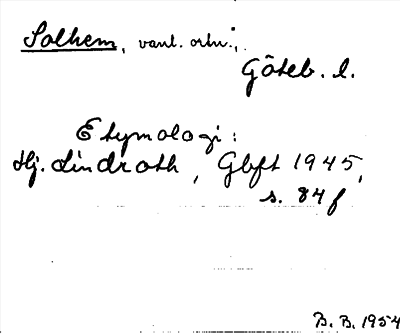 Solhem, vanl. ortn.;
Göteb. l.
Etymologi:
Hj. Lindroth, Gbft 1945,
s. 84 f
B. B. 1954